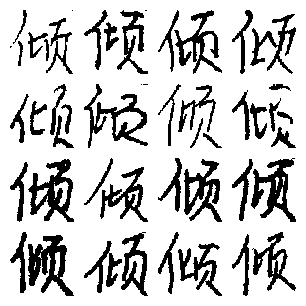 倾倾倾倾
倾倾倾倾
倾倾倾倾
倾倾倾倾